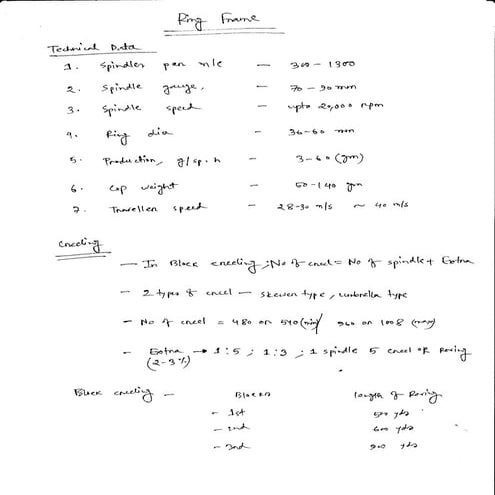 Ring Frame
Technical Data
1. Spindles per m/c — 300-1300
2. Spindle gauge, — 70-90 mm
3. Spindle speed — upto 20,000 rpm
4. Ring dia — 36-60 mm
5. Production, g/sp.h — 3-60 (gm)
6. Cop weight — 50-140 gm
7. Traveller speed — 28-30 m/s ~ 40 m/s
Creeling
— In Block creeling; No of creel = No of spindle + Extra
- 2 types of creel — skewer type, umbrella type
- No of creel = 480 or 540 (min) 960 or 1008 (max)
- Extra → 1:5; 1:3; 1 spindle 5 creel or Roving
(2-3%)
Block creeling — Blocks length of Roving
- 1st 500 yds
- 2nd 600 yds
- 3rd 900 yds